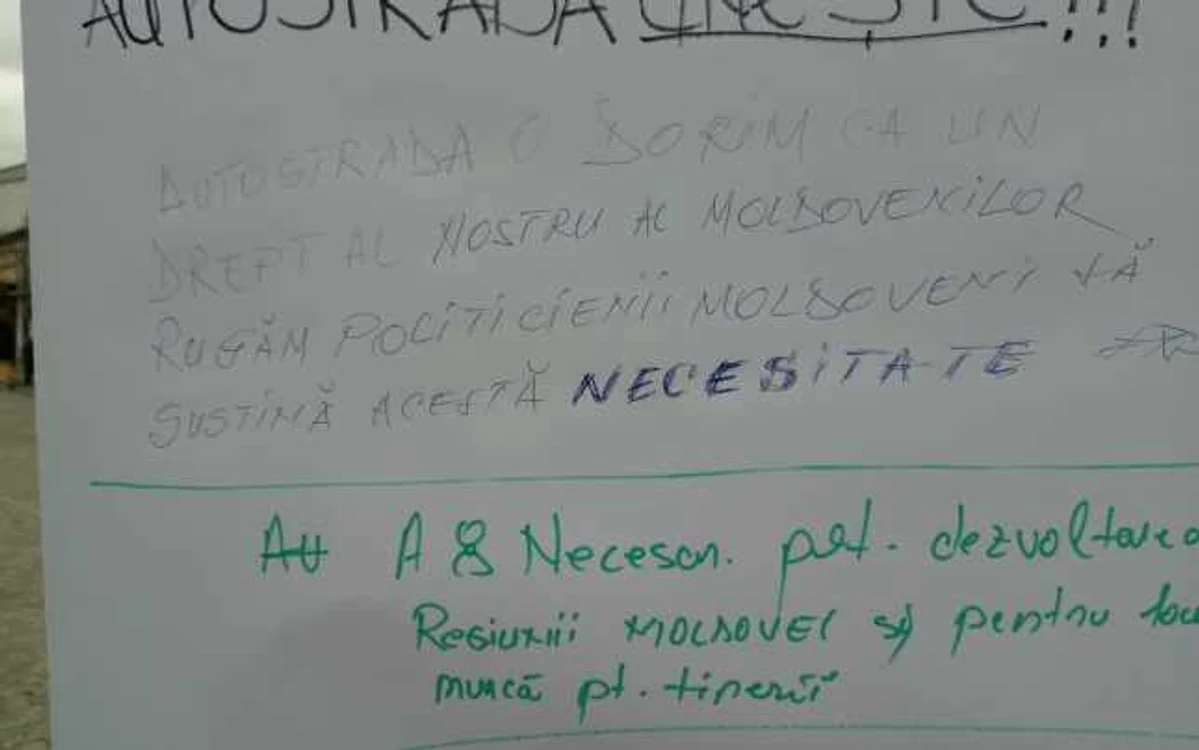 AUTOSTRADA UNEȘTE!!!
AUTOSTRADA O DORIM CA UN
DREPT AL NOSTRU AL MOLDOVENILOR
RUGĂM POLITICIENII MOLDOVENI SĂ
SUSTINĂ ACESTĂ NECESITATE
A 8 Necesar. pet. dezvoltarea
Regiunii MOLDOVEI și pentru
muncă pt. tinerii